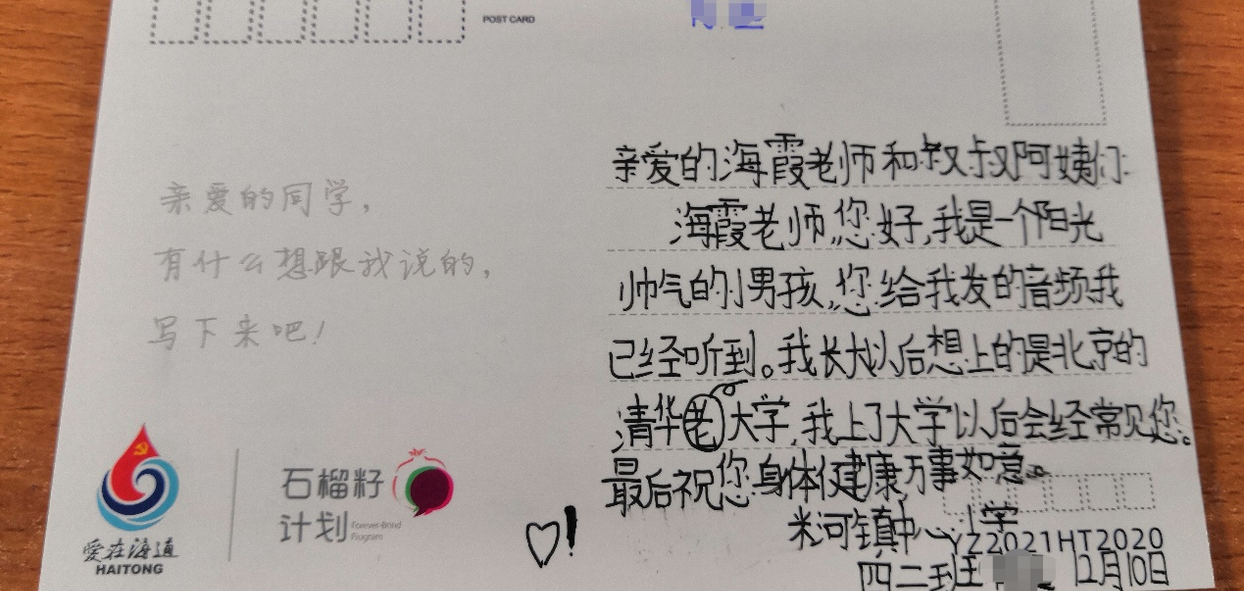 POST CARD
亲爱的同学，
有什么想跟我说的，
写下来吧！
爱在海通
HAITONG
石榴籽
计划
Forever-Bond
Program
亲爱的海霞老师和叔叔阿姨们：
海霞老师，您好，我是一个阳光
帅气的小男孩，您给我发的音频我
已经听到。我长大以后想上的是北京的
清华老大学，我上了大学以后会经常见您。
最后祝您身体健康，万事如意。
米河镇中心小学
YZ2021HT2020
四二班王 12月10日